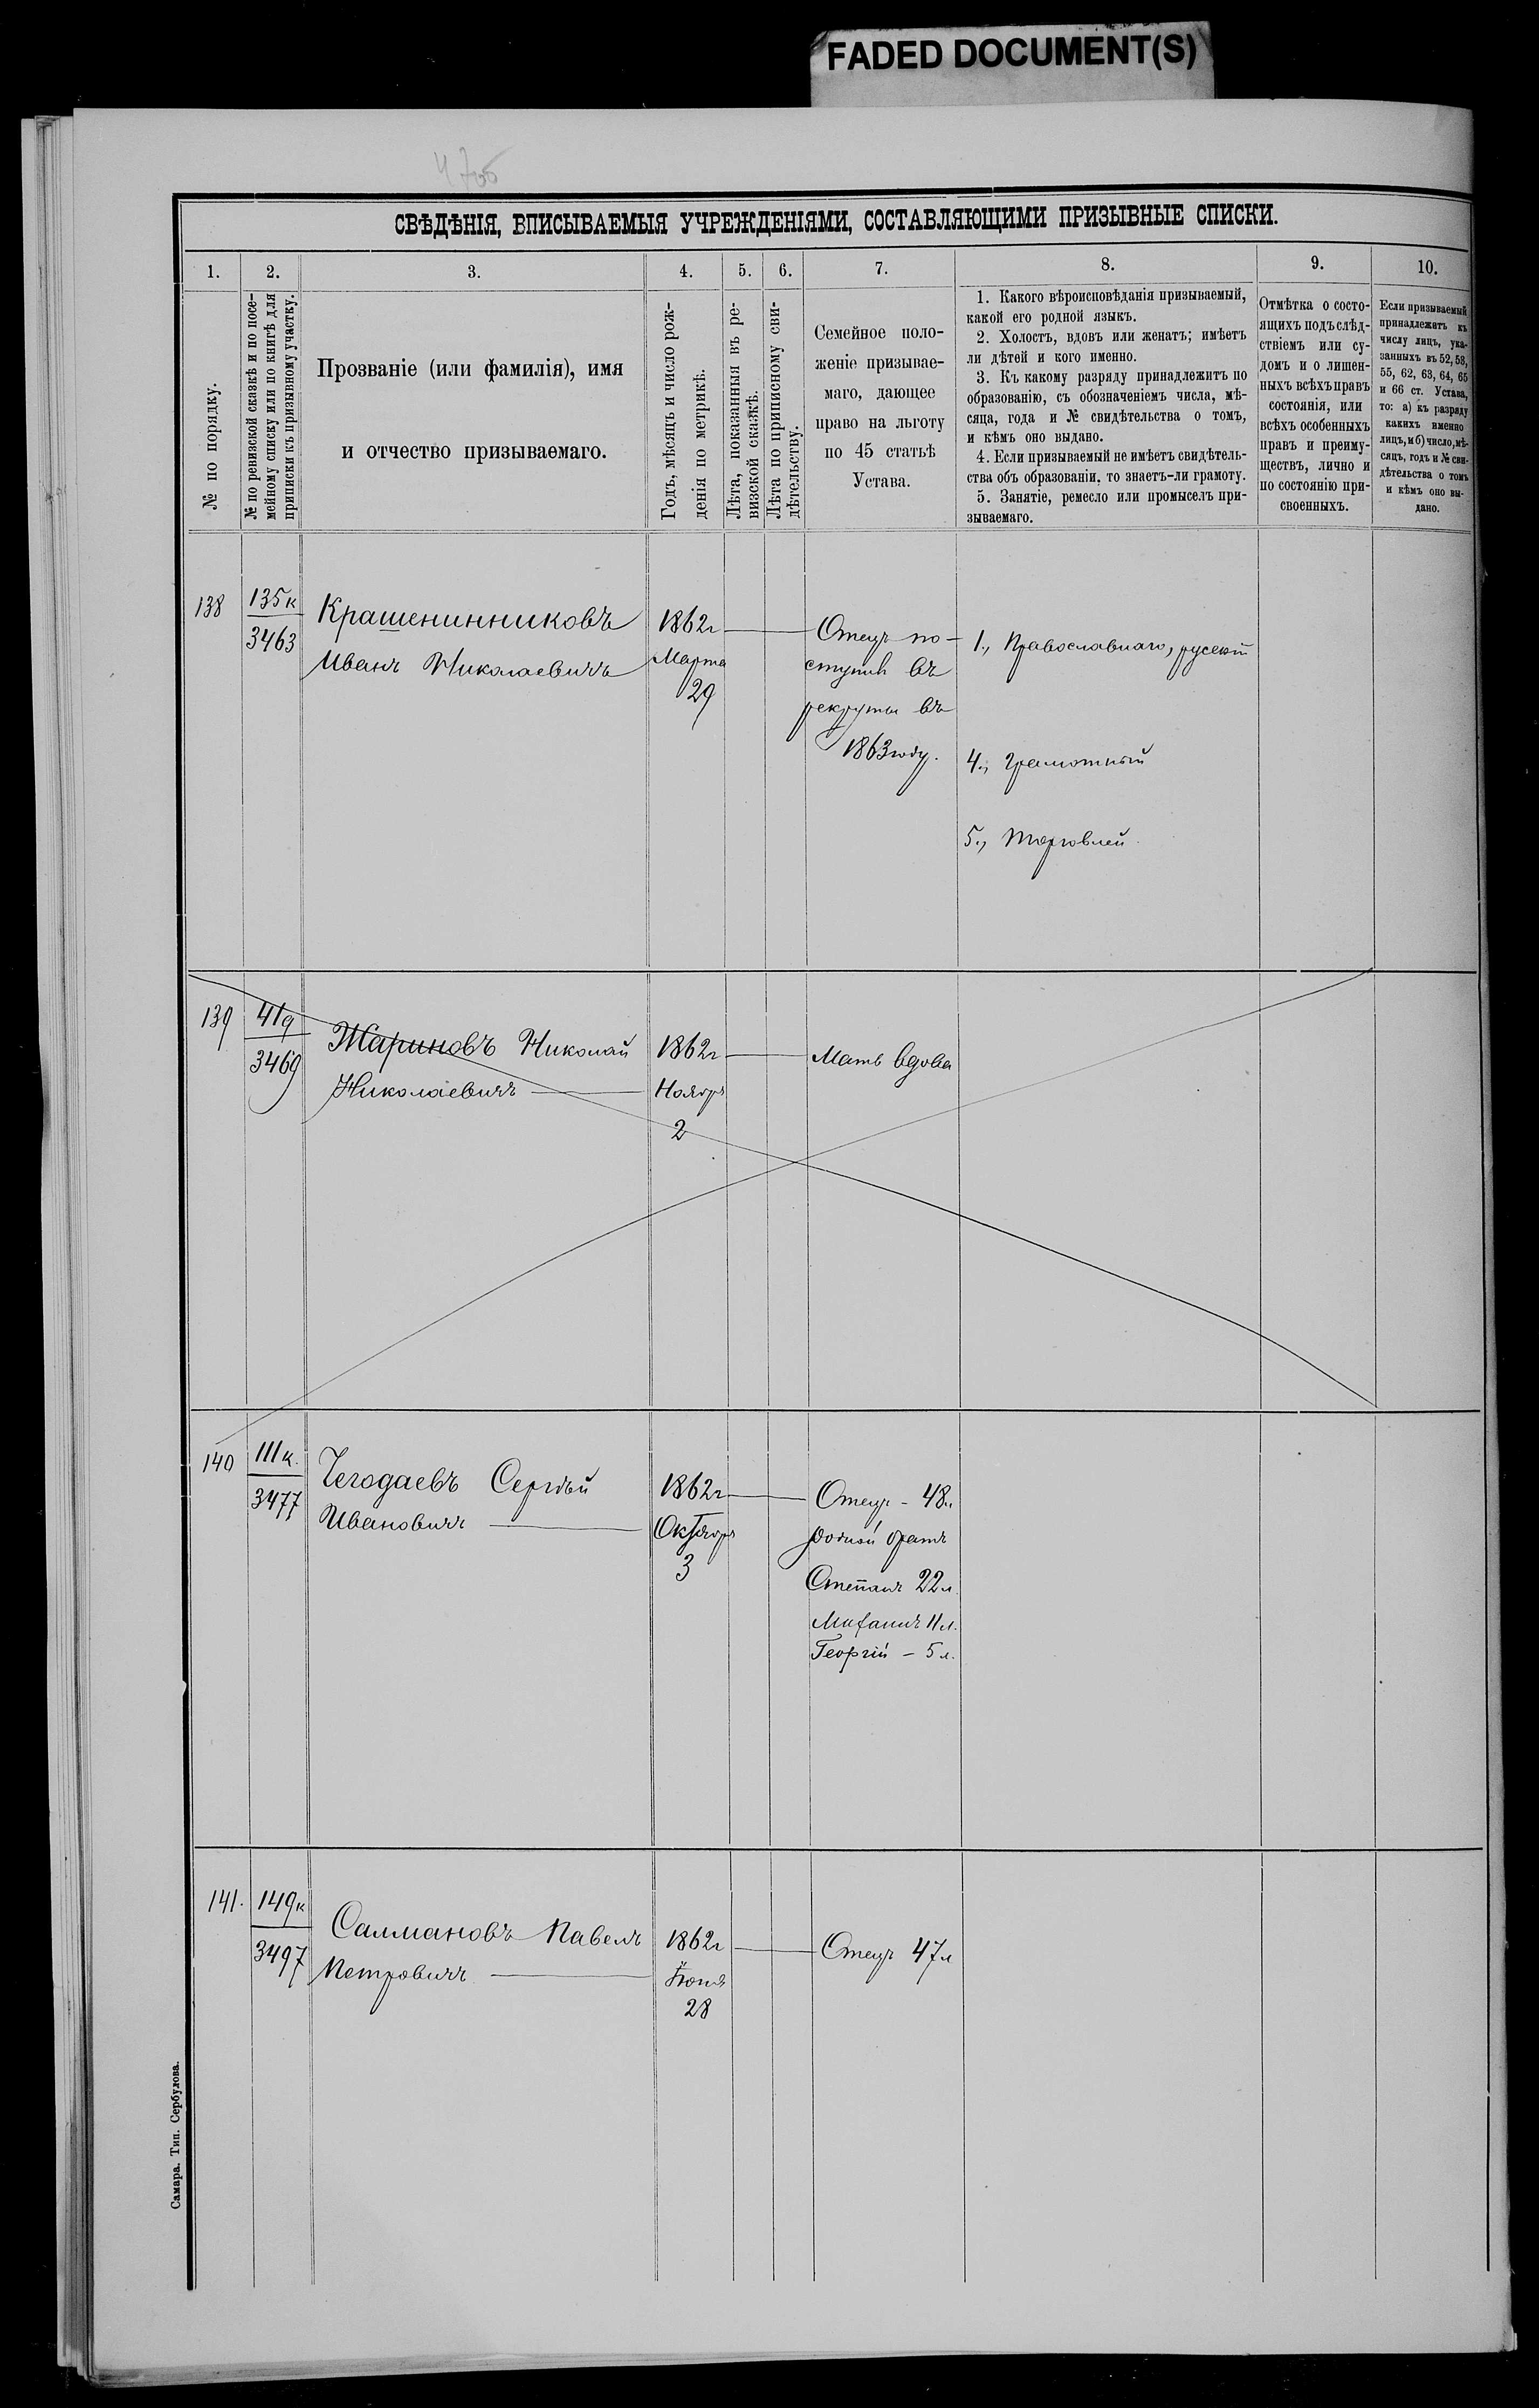 FADED DOCUMENT(S)
СВѢДѢНІЯ, ВПИСЫВАЕМЫЯ УЧРЕЖДЕНІЯМИ, СОСТАВЛЯЮЩИМИ ПРИЗЫВНЫЕ СПИСКИ.
1. 2. 3. 4. 5. 6. 7. 8. 9. 10.
№ по порядку.
№ по ревизской сказкѣ и по посе-
мейному списку или по книгѣ для
приписки къ призывному участку.
Прозваніе (или фамилія), имя
и отчество призываемаго.
Годъ, мѣсяцъ и число рож-
денія по метрикѣ.
Лѣта, показанныя въ ре-
визской сказкѣ.
Лѣта по приписному сви-
дѣтельству.
Семейное поло-
женіе призывае-
маго, дающее
право на льготу
по 45 статьѣ
Устава.
1. Какого вѣроисповѣданія призываемый,
какой его родной языкъ.
2. Холостъ, вдовъ или женатъ; имѣетъ
ли дѣтей и кого именно.
3. Къ какому разряду принадлежитъ по
образованію, съ обозначеніемъ числа, мѣ-
сяца, года и № свидѣтельства о томъ,
и кѣмъ оно выдано.
4. Если призываемый не имѣетъ свидѣтель-
ства объ образованіи, то знаетъ-ли грамоту.
5. Занятіе, ремесло или промыселъ при-
зываемаго.
Отмѣтка о состо-
ящихъ подъ слѣд-
ствіемъ или су-
домъ и о лишен-
ныхъ всѣхъ правъ
состоянія, или
всѣхъ особенныхъ
правъ и преиму-
ществъ, лично и
по состоянію при-
своенныхъ.
Если призываемый
принадлежитъ къ
числу лицъ, ука-
занныхъ въ 52, 53,
55, 62, 63, 64, 65
и 66 ст. Устава,
то: а) къ разряду
какихъ именно
лицъ, и б) число, мѣ-
сяцъ, годъ и № сви-
дѣтельства о томъ
и кѣмъ оно вы-
дано.
138
135к
3463
Крашенинниковъ
Иванъ Николаевичъ
1862г
Марта
29
Отецъ по-
ступилъ въ
рекруты въ
1863 году.
1., Православнаго, русскій
4., Грамотный
5., Торговлей.
139
41д
3469
Жариновъ Николай
Николаевичъ
1862г
Ноябр
2
Мать вдова
140
111к.
3477
Чегодаевъ Сергѣй
Ивановичъ
1862г
Октябр
3
Отецъ - 48л
родной братъ
Степанъ 22л.
Михаилъ 11л.
Георгій - 5л.
141.
149к
3497
Салмановъ Павелъ
Петровичъ
1862г
Іюня
28
Отецъ 47л
Самара. Тип. Сербулова.